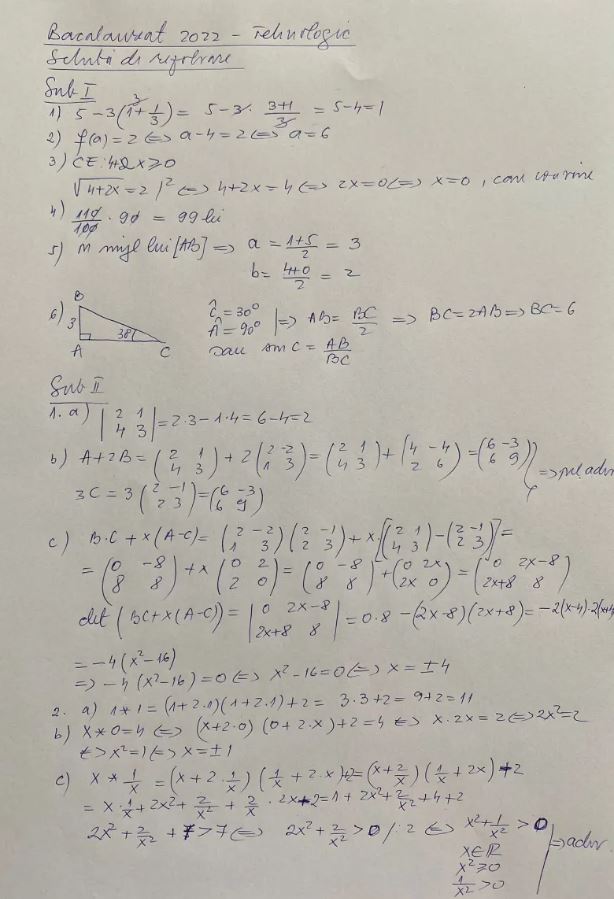 Bacalaureat 2022 - Tehnologic
Soluții de rezolvare
Sub I
1) 5-3(1+1/3) = 5-3·(3+1)/3 = 5-4=1
2) f(a)=2 ⇔ a-4=2 ⇔ a=6
3) CE: 4+2x≥0
√(4+2x)=2 |² ⇔ 4+2x=4 ⇔ 2x=0 ⇔ x=0, care
4) 110/100 · 90 = 99 lei
5) M mijl lui [AB] ⇒ a = (1+5)/2 = 3
b = (4+0)/2 = 2
6) B 3 A 30° C
Ĉ=30°
Â=90° |⇒ AB=BC/2 ⇒ BC=2AB ⇒ BC=6
sau sin C = AB/BC
Sub II
1. a) |2 1; 4 3| = 2·3-1·4=6-4=2
b) A+2B=(2 1; 4 3)+2(2 -2; 1 3)=(2 1; 4 3)+(4 -4; 2 6)=(6 -3; 6 9)
3C=3(2 -1; 2 3)=(6 -3; 6 9) ⇒ rel. adv
c) B·C+x(A-C)=(2 -2; 1 3)(2 -1; 2 3)+x[(2 1; 4 3)-(2 -1; 2 3)]=
=(0 -8; 8 8)+x(0 2; 2 0)=(0 -8; 8 8)+(0 2x; 2x 0)=(0 2x-8; 2x+8 8)
det(BC+x(A-C))=|0 2x-8; 2x+8 8|=0·8-(2x-8)(2x+8)=-2(x-4)·2(x+4)
=-4(x²-16)
⇒ -4(x²-16)=0 ⇔ x²-16=0 ⇔ x=±4
2. a) 1*1=(1+2·1)(1+2·1)+2= 3·3+2=9+2=11
b) x*0=4 ⇔ (x+2·0)(0+2·x)+2=4 ⇔ x·2x=2 ⇔ 2x²=2
⇔ x²=1 ⇔ x=±1
c) x*1/x=(x+2·1/x)(1/x+2·x)+2=(x+2/x)(1/x+2x)+2
=x·1/x+2x²+2/x²+2/x·2x+2=1+2x²+2/x²+4+2
2x²+2/x²+7>7 ⇔ 2x²+2/x²>0 /:2 ⇔ x²+1/x²>0
x∈ℝ
x²≥0 ⇒ adv.
1/x²>0